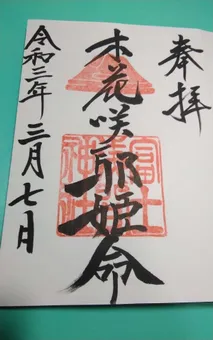 奉拝
木花咲耶姫命
富士神社
令和三年三月七日